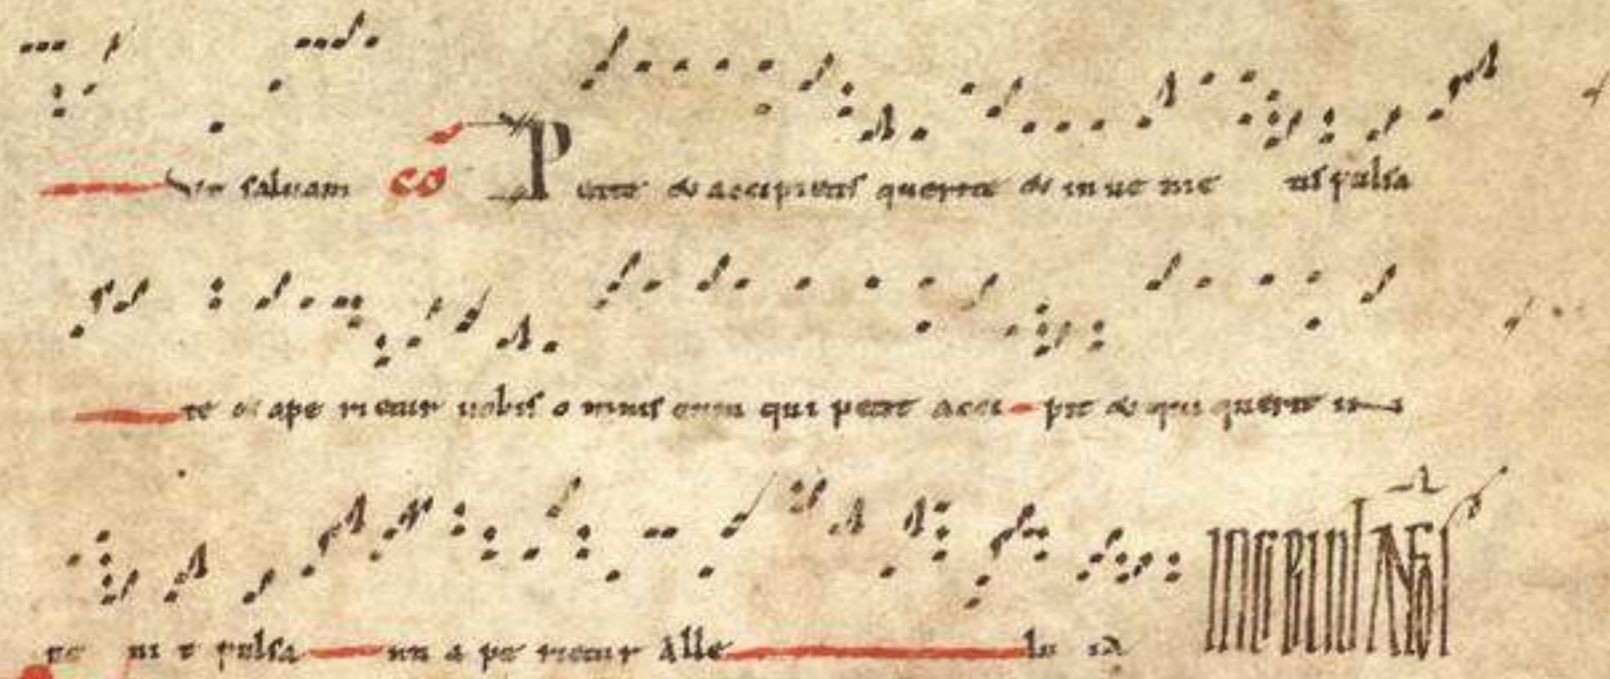 saluam co Petite & accipietis querite & in ue nie tis pulsa
te & ape rietur uobis o mnis enim qui petit acci pit & qui querit in
ue ni t pulsa nti a pe rietur Alle lu ia